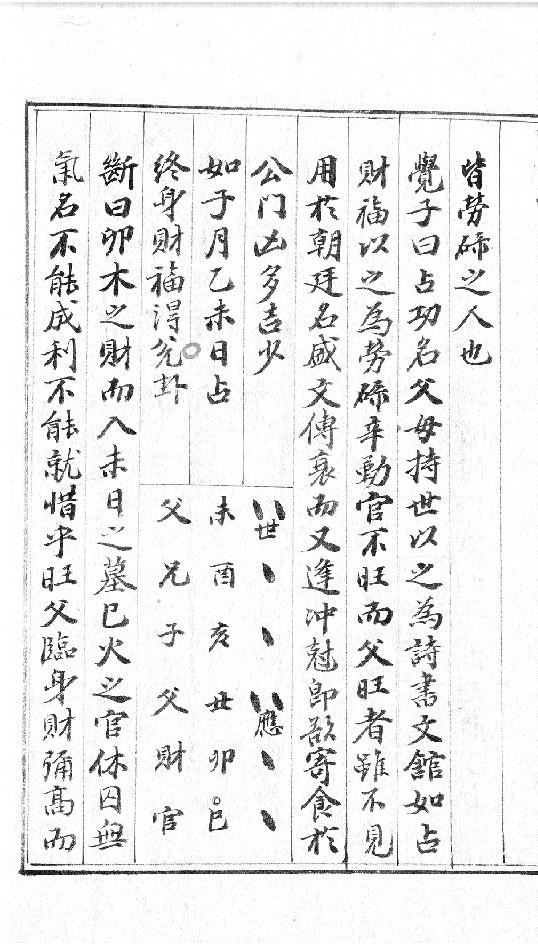 皆勞碌之人也
覺子曰占功名父母持世以之為詩書文館如占
財福以之為勞碌辛勤官不旺而父旺者雖不見
用於朝廷名盛文傳衰而又逢冲尅即欲寄食於
公门凶多吉少
如子月乙未日占
終身財福淂兊卦
世
應
未酉亥丑卯巳
父兄子父財官
斷曰卯木之財而入未日之墓巳火之官休囚無
氣名不能成利不能就惜乎旺父臨身財弥高而